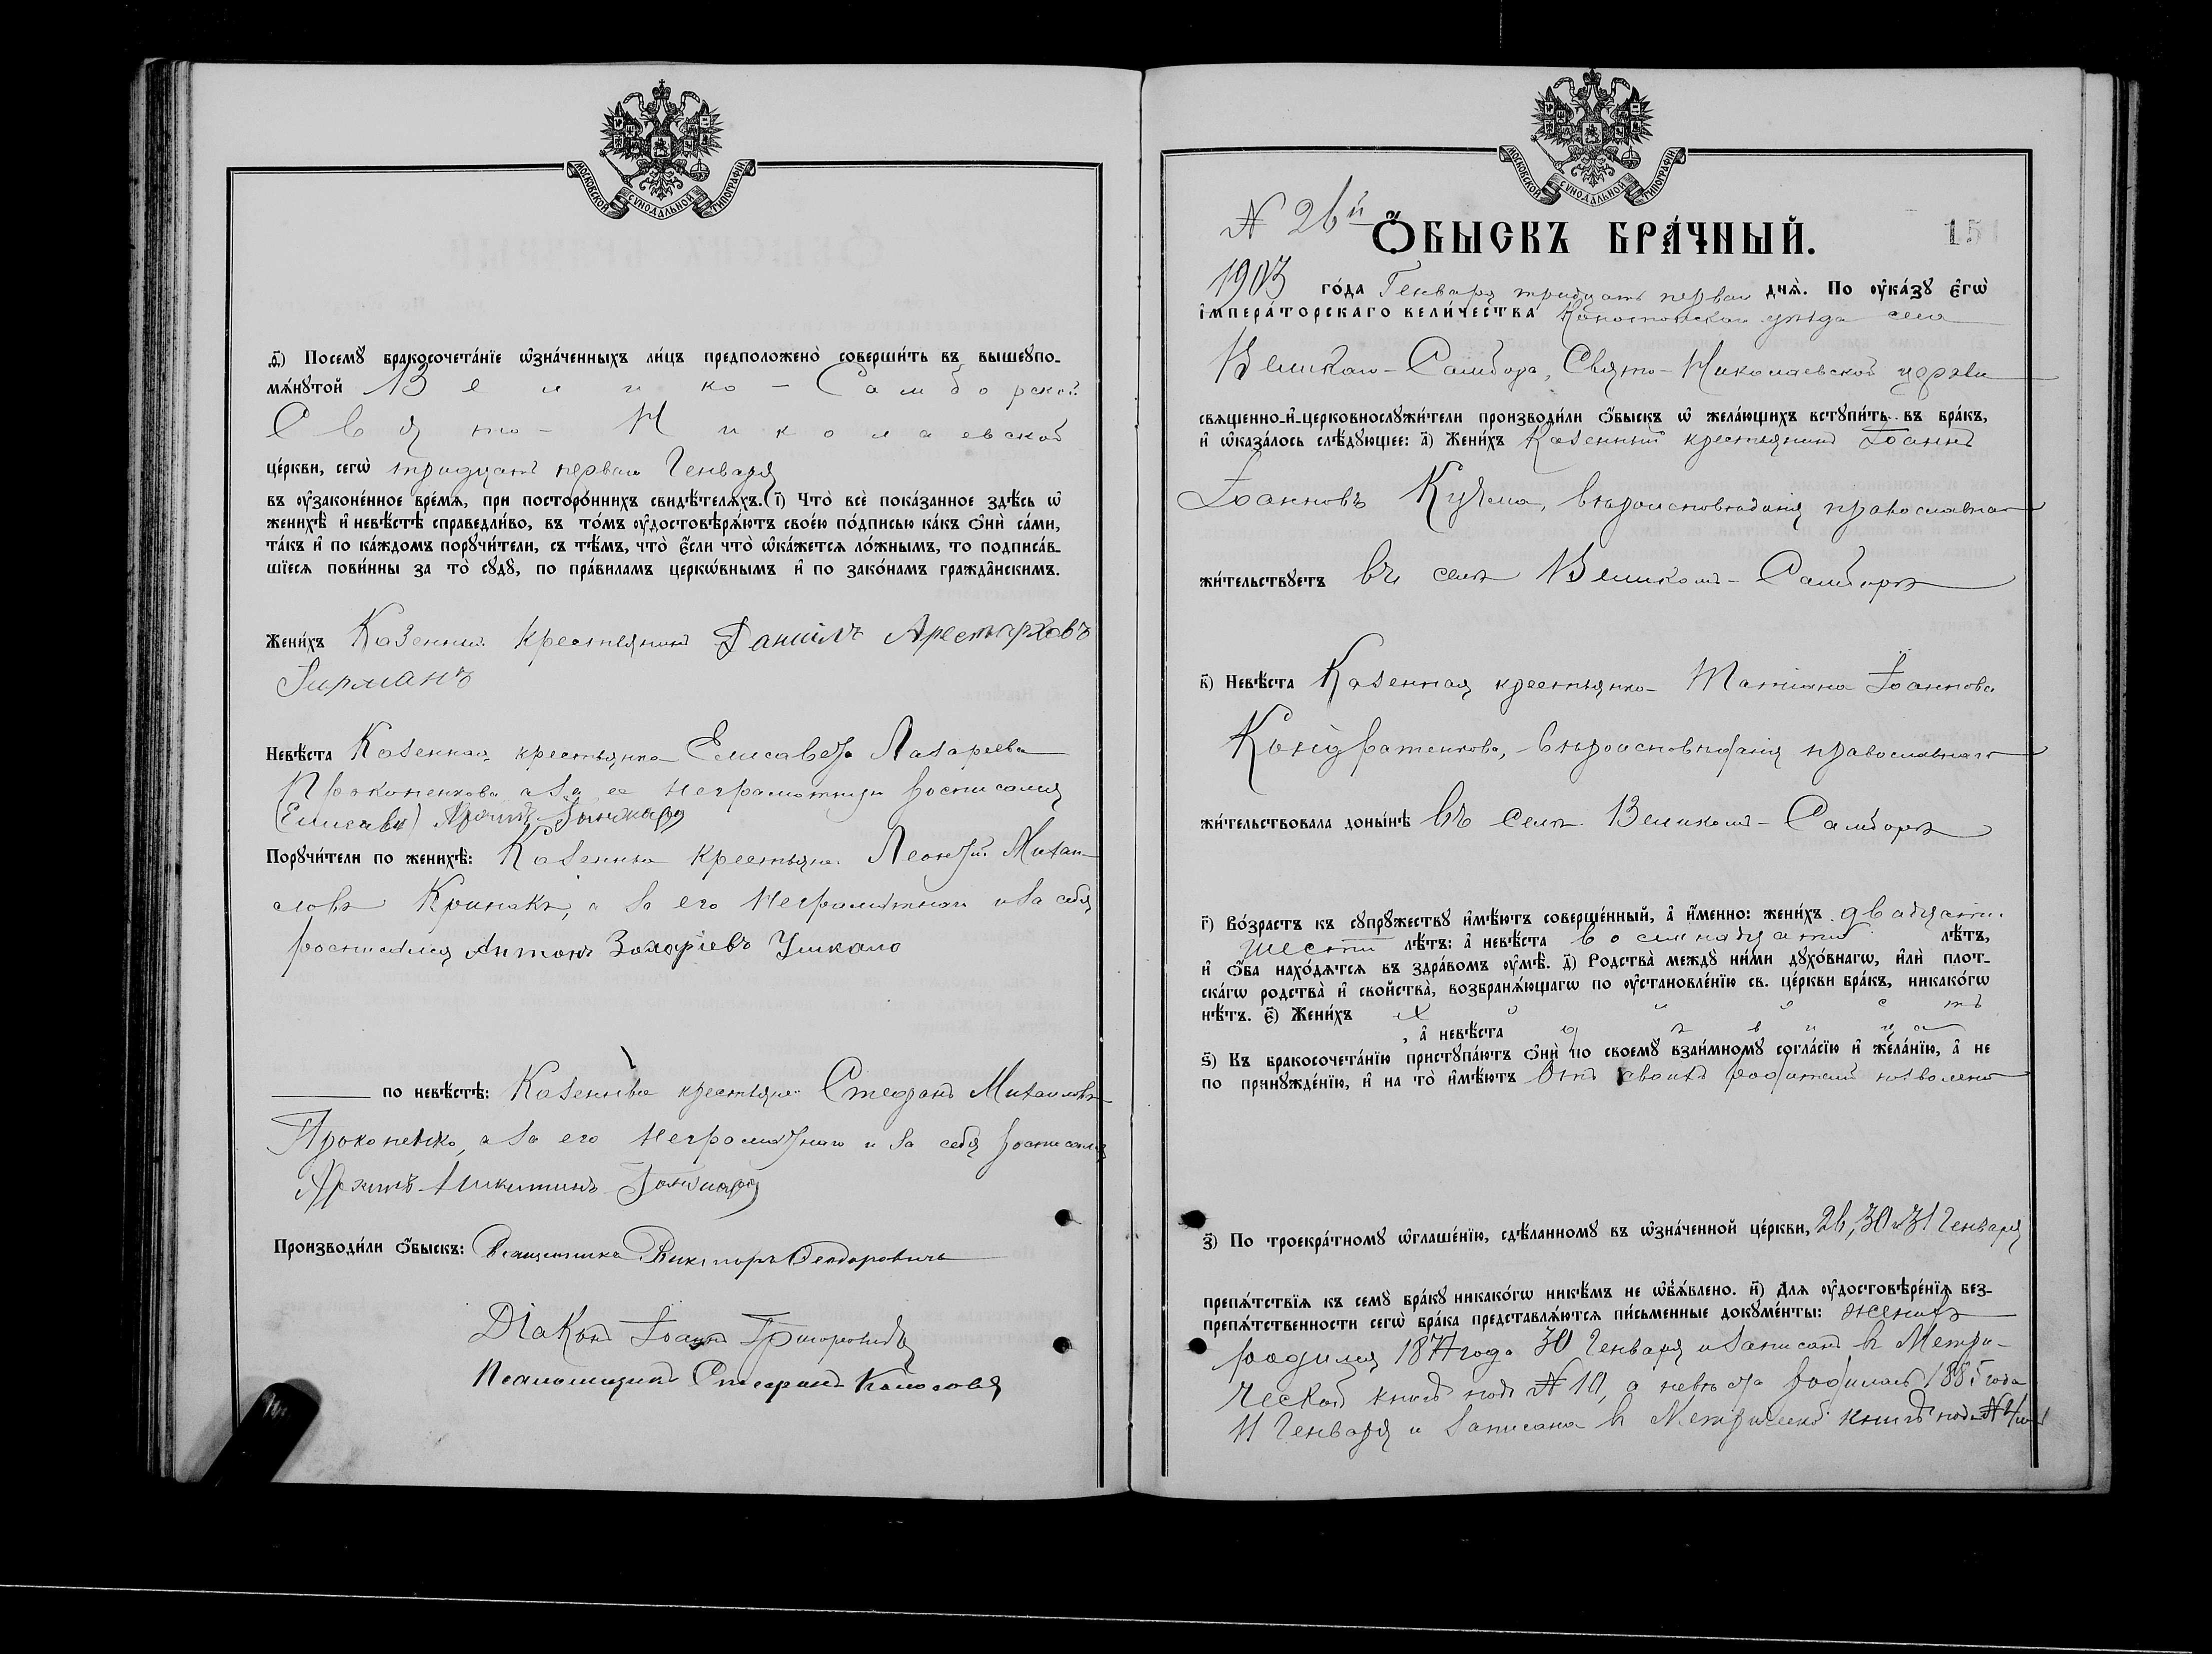 МОСКОВСКОЙ СѴНОДАЛЬНОЙ ТИПОГРАФІИ.
д҃) Посемꙋ бракосочета́нїе ѡ҆зна́ченныхъ ли́цъ предположено̀ соверши́ть въ вышеꙋпо-
мѧ́нꙋтой Велико-Самборской
Свято-Николаевской
це́ркви, сегѡ̀ тридцать перваго Генваря
въ ᲂу҆законе́нное вре́мѧ, при посторо́ннихъ свидѣ́телѧхъ. (і҃) Что̀ всѐ пока́занное здѣ́сь ѡ҆
женихѣ̀ и҆ невѣ́стѣ справедли́во, въ то́мъ ᲂу҆достовѣрѧ́ютъ свое́ю по́дписью ка́къ ѻ҆нѝ са́ми,
та́къ и҆ по ка́ждомъ порꙋчи́тели, съ тѣ́мъ, что̀ є҆́сли что̀ ѡ҆ка́жетсѧ ло́жнымъ, то подписа́в-
шїесѧ пови́нны за то̀ сꙋдꙋ̀, по пра́виламъ церкѡ́внымъ и҆ по зако́намъ гражда̂нскимъ.
Жени́хъ Казенный крестьянинъ Даніилъ Арестарховъ
Гирманъ
Невѣ́ста Казенная крестьянка Елисавета Лазарева
Прокопенкова а за ее неграмотную росписался
(Елисаву) Архипъ Гончаръ
Порꙋчи́тели по женихѣ̀: Казенные крестьяне Леонтій Михаи-
ловъ Крипакъ, а за его неграмотнаго и за себя
росписался Антонъ Захаріевъ Ушкало
по невѣ́стѣ: Казенные крестьяне Стефанъ Михаиловъ
Прокопенко, а за его неграмотнаго и за себя росписался
Архипъ Никитинъ Гончаръ
Производи́ли ѻ҆́быскъ: Священникъ Викторъ Ѳеодоровичъ
Діаконъ Іоаннъ Григоровичъ
Псаломщикъ Стефанъ Колосовъ
МОСКОВСКОЙ СѴНОДАЛЬНОЙ ТИПОГРАФІИ.
N 26й Ѻ҆́БЫСКЪ БРА́ЧНЫЙ. 151
1903 го́да Генваря тридцать перваго днѧ̀. По ᲂу҆ка́зꙋ є҆гѡ̀
і҆мпера́торскаго вели́чества Конотопскаго уѣзда села
Великаго-Самбора, Свято-Николаевской церкви
свѧще́нно-и҆-церковнослꙋжи́тели производи́ли ѻ҆́быскъ ѡ҆ жела́ющихъ встꙋпи́ть въ бра́къ,
и҆ ѡ҆каза́лось слѣ́дꙋющее: а҃) Жени́хъ Казенный крестьянинъ Іоаннъ
Іоанновъ Кузьма, вѣроисповѣданія православнаго
жи́тельствꙋетъ въ селѣ Великомъ-Самборѣ
в҃) Невѣ́ста Казенная крестьянка Татіана Іоаннова
Кондратенкова, вѣроисповѣданія православнаго
жи́тельствовала доны́нѣ въ селѣ Великомъ-Самборѣ
г҃) Во́зрастъ къ сꙋпрꙋ́жествꙋ и҆мѣ́ютъ соверше́нный, а҆ и҆́менно: жени́хъ двадцати
шести лѣ́тъ: а҆ невѣ́ста восемнадцати лѣ́тъ,
и҆ ѻ҆́ба нахо́дѧтсѧ въ здра́вомъ ᲂу҆мѣ̀. д҃) Родства̀ междꙋ ни́ми дꙋхо́внагѡ, и҆лѝ плот-
ска́гѡ родства̀ и҆ свойства̀, возбранѧ́ющагѡ по ᲂу҆становле́нїю св. це́ркви бра́къ, никако́гѡ
нѣ́тъ. є҃) Жени́хъ холостъ
, а҆ невѣ́ста дѣвица
ѕ҃) Къ бракосочета́нїю пристꙋпа́ютъ ѻ҆нѝ по своемꙋ̀ взаи́мномꙋ согла́сїю и҆ жела́нїю, а҆ не
по принꙋжде́нїю, и҆ на то̀ и҆мѣ́ютъ отъ своихъ родителей позволеніе
з҃) По троекра́тномꙋ ѡ҆глаше́нїю, сдѣ́ланномꙋ въ ѡ҆зна́ченной це́ркви, 26, 30 и 31 Генваря
препѧ́тствїѧ къ семꙋ̀ бра́кꙋ никако́гѡ никѣ́мъ не ѡ҆б̾ѧ́влено. и҃) Длѧ ᲂу҆достовѣре́нїѧ без-
препѧ́тственности сегѡ̀ бра́ка представлѧ́ютсѧ пи́сьменные докꙋме́нты: женихъ
родился 1877 года 30 Генваря и записанъ въ Метри-
ческой книгѣ подъ N 10, а невѣста родилась 1885 года
11 Генваря и записана въ Метрической книгѣ подъ N 4